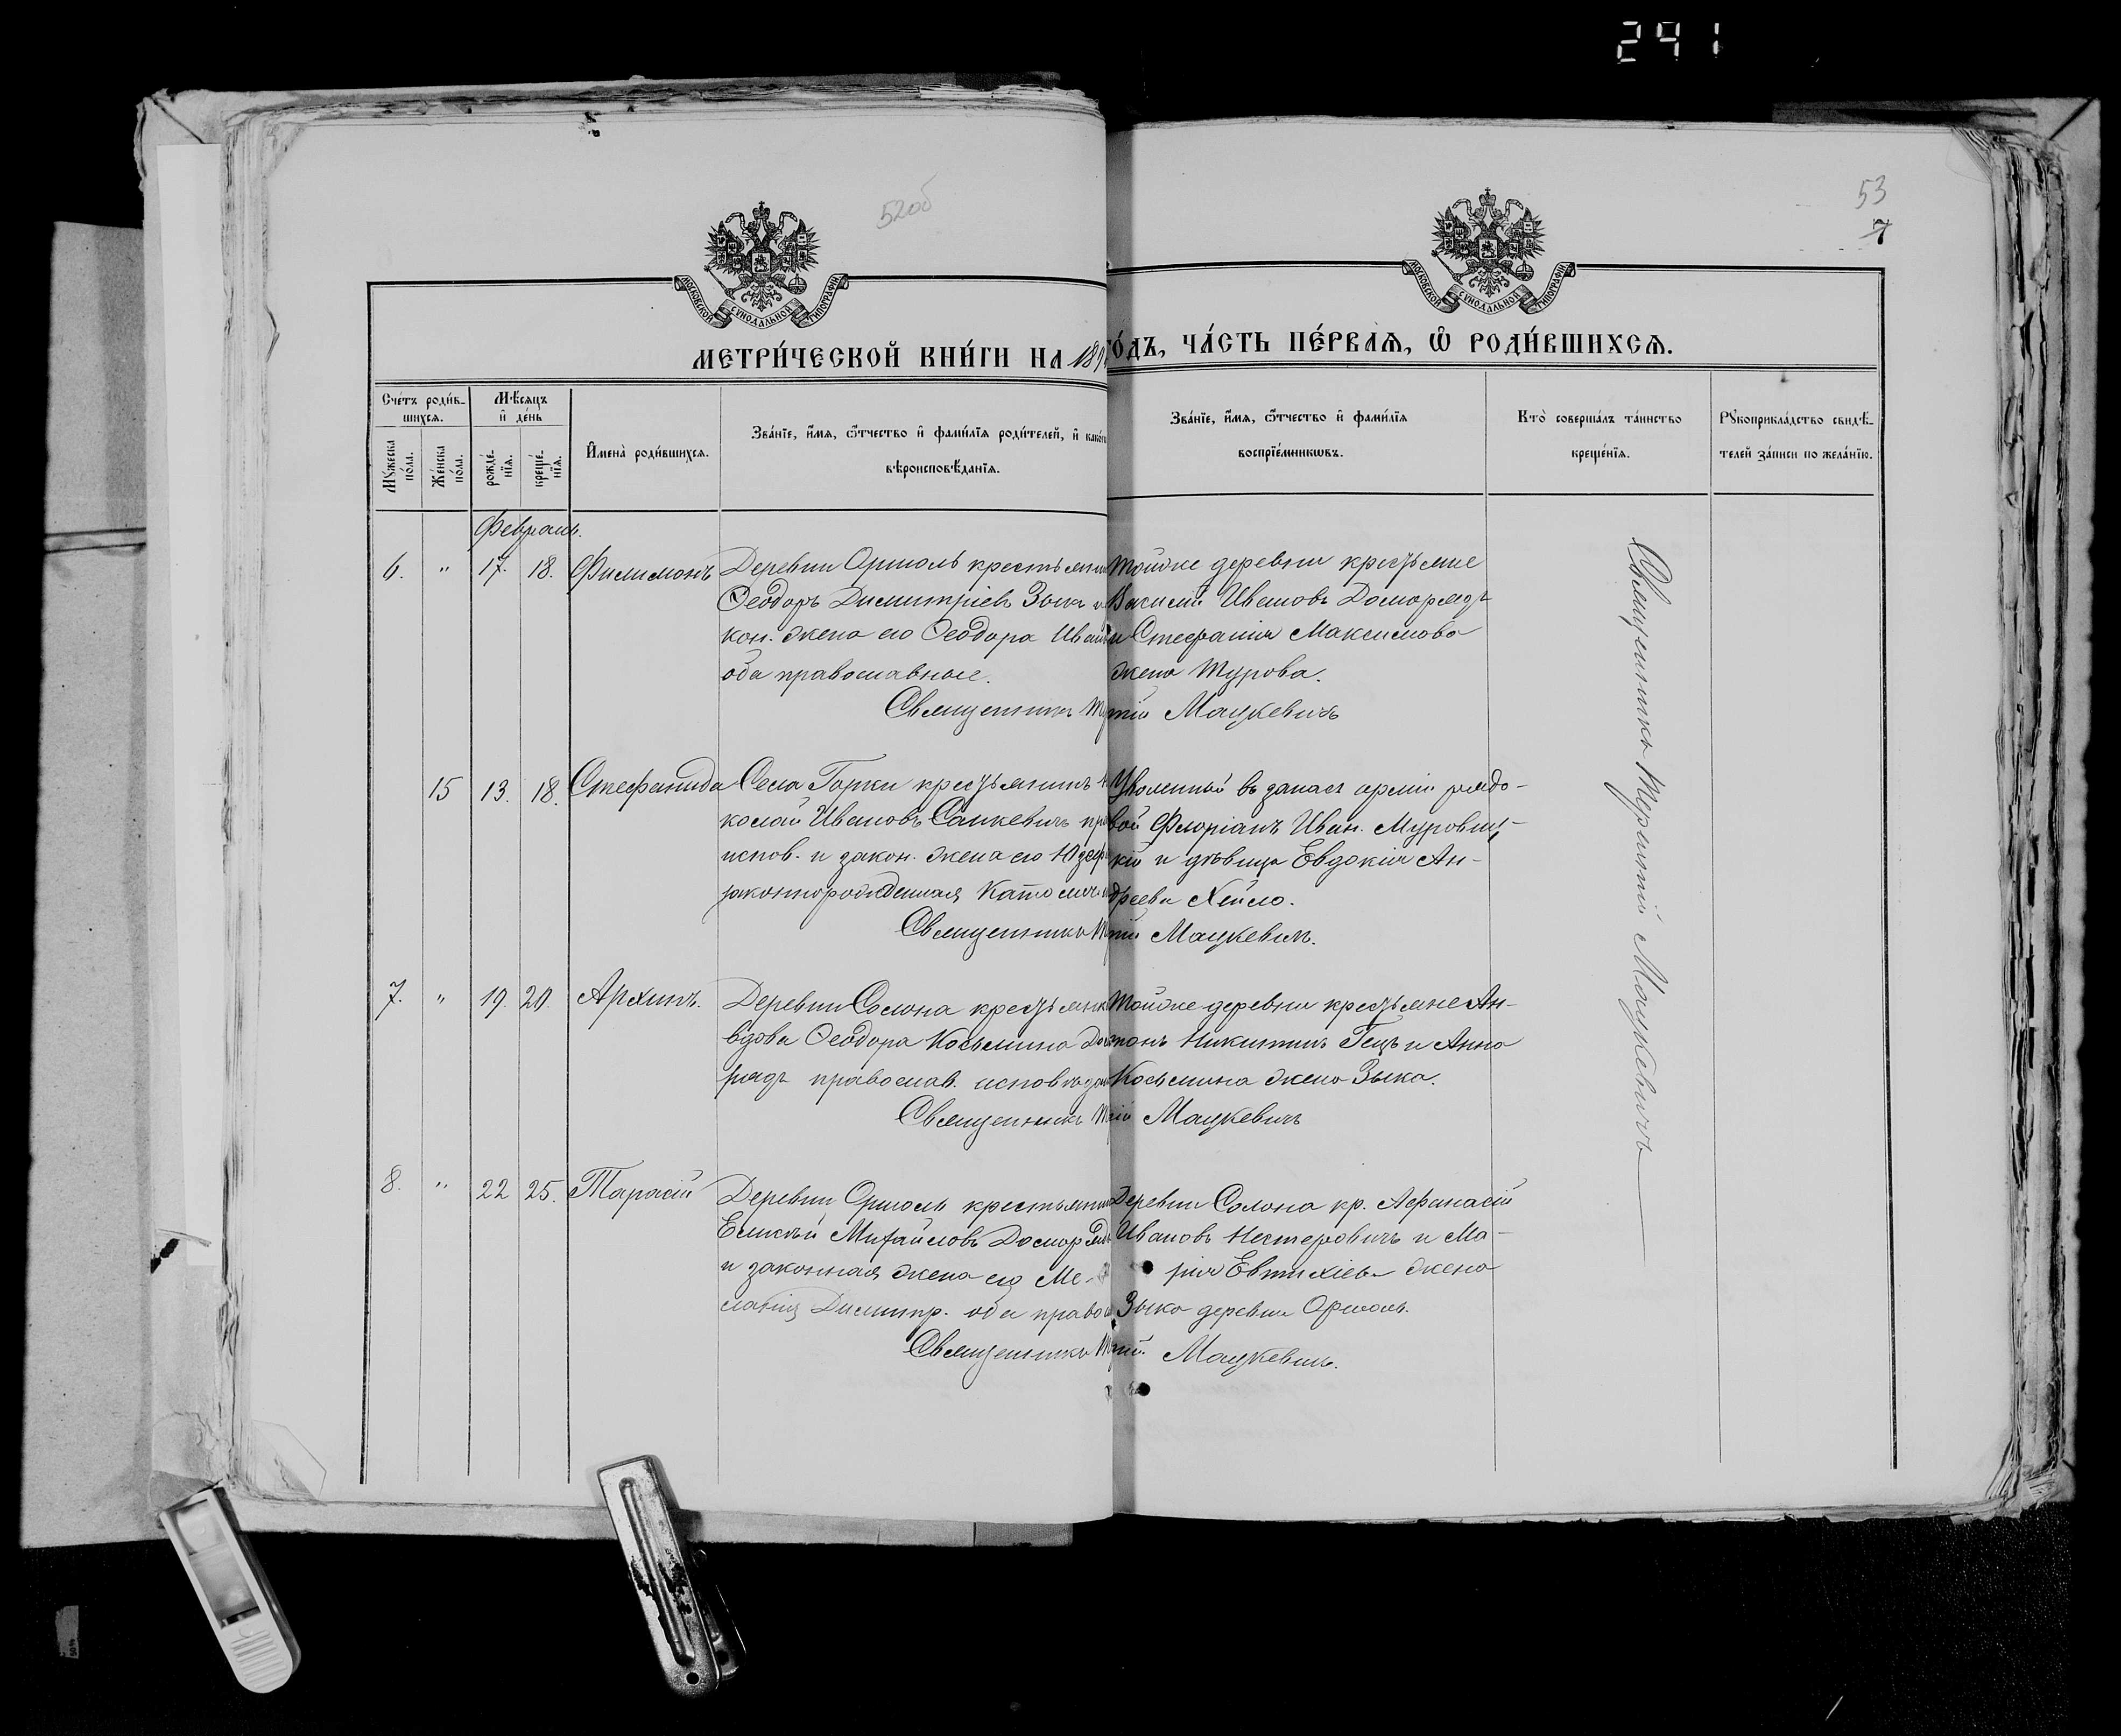 291
52об
53
7
МОСКОВСКОЙ СУНОДАЛЬНОЙ ТИПОГРАФІИ
МОСКОВСКОЙ СУНОДАЛЬНОЙ ТИПОГРАФІИ
МЕТРИ́ЧЕСКОЙ КНИ́ГИ НА 189
ГО́ДЪ, ЧА́СТЬ ПЕ́РВАѦ, Ѡ҆ РОДИ́ВШИХСѦ.
Сче́тъ роди́в-
шихся.
Мꙋ́жеска по́ла.
Же́нска по́ла.
Мѣ́сяцъ
и҆ де́нь
рожде́-
нїѧ.
креще́-
нїѧ.
И҆мена̀ роди́вшихсѧ.
Зва́нїе, и҆́мѧ, ѻ҆́тчество и҆ фами́лїѧ роди́телей, и҆ како́гѡ
вѣроисповѣ́данїѧ.
Зва́нїе, и҆́мѧ, ѻ҆́тчество и҆ фами́лїѧ
воспрїе́мникѡвъ.
Кто̀ соверша́лъ та́инство
креще́нїѧ.
Рꙋкоприкла́дство свидѣ́-
телей за́писи по жела́нїю.
Февраль.
6. " 17. 18. Филимонъ
Деревни Орполь крестьянин
Ѳеодоръ Димитріевъ Зыкъ и
кон. жена его Ѳеодора Иван
оба православные.
Священникъ
Тойже деревни крестьяне
Василий Ивановъ Доморадъ
и Стефанія Максимова
жена Турова.
тій Мацкевичъ
15 13. 18. Стефанида
Села Горки крестьянинъ
колай Ивановъ Санкевичъ пра
испов. и закон. жена его Юзеф
законнорожденная католич.
Священникъ
Уволенный въ запасъ арміи рядо-
вой Флоріанъ Иван. Муровиц-
кій и дѣвица Евдокія Ан-
дреева Хейло.
тій Мацкевичъ.
7. " 19. 20. Архипъ.
Деревни Солона крестьянка
вдова Ѳеодора Косьмина До
радъ православ. исповѣдан
Священникъ
Тойже деревни крестьяне Ан-
тонъ Никитинъ Гецъ и Анна
Косьмина жена Зыка.
тій Мацкевичъ
8. " 22 25. Тарасій
Деревни Орполь крестьянин
Михайловъ Доморадъ
и законная жена его Ме-
ланія Димитр. оба правос
Священникъ
Деревни Солона кр. Афанасій
Ивановъ Нестеровичъ и Ма-
рія Евтихіева жена
Зыка деревни Орполь.
тій Мацкевичъ.
Священникъ Терентій Мацкевичъ